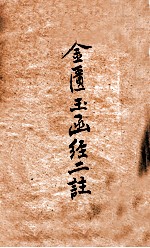 金匱玉函經二註